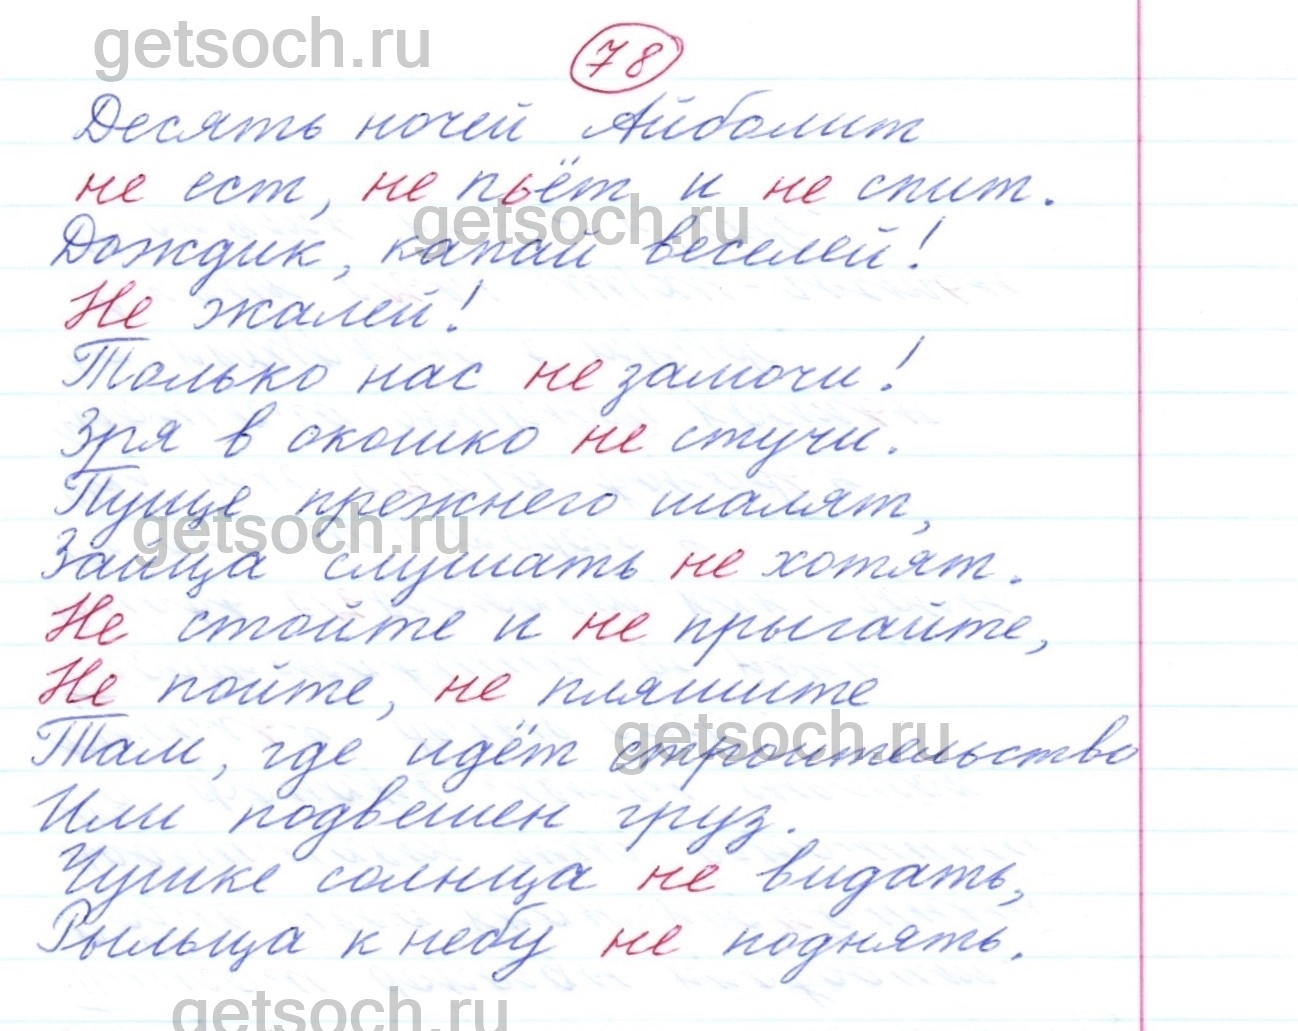 getsoch.ru
78
Десять ночей Айболит
не ест, не пьёт и не спит.
getsoch.ru
Дождик, капай веселей!
Не жалей!
Только нас не замочи!
Зря в окошко не стучи.
Пуще прежнего шалят,
getsoch.ru
Зайца слушать не хотят.
Не стойте и не прыгайте,
Не пойте, не пляшите
getsoch.ru
Там, где идёт строительство
Или подвешен груз.
Чушке солнца не видать,
Рыльца к небу не поднять.
getsoch.ru